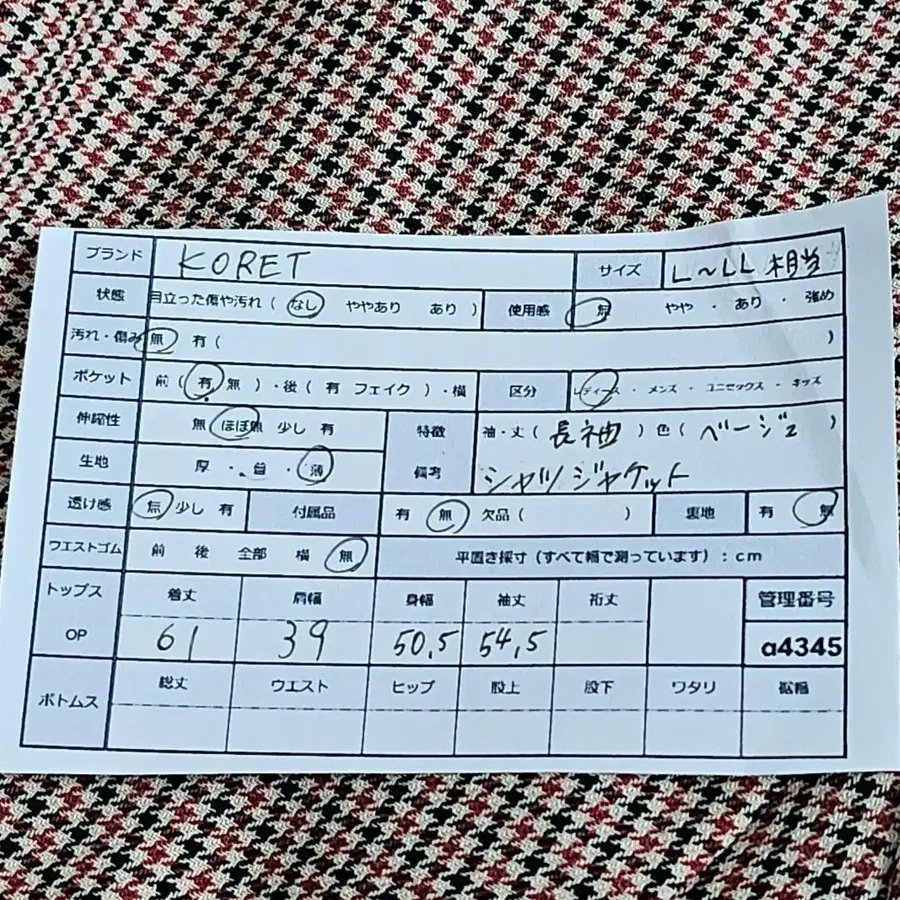 ブランド KORET サイズ L～LL 相当
状態 目立った傷や汚れ（ なし ややあり あり ） 使用感 無 やや ・ あり ・ 強め
汚れ・傷み 無 有（ ）
ポケット 前（ 有 無 ）・後（ 有 フェイク ）・横 区分 レディース ・ メンズ ・ ユニセックス ・ キッズ
伸縮性 無 ほぼ無 少し 有 特徴 袖・丈（ 長袖 ）色（ ベージュ ）
生地 厚 ・ 普 ・ 薄 備考 シャツジャケット
透け感 無 少し 有 付属品 有 無 欠品（ ） 裏地 有 無
ウエストゴム 前 後 全部 横 無 平置き採寸（すべて幅で測っています）：cm
トップス 着丈 肩幅 身幅 袖丈 裄丈 管理番号
OP 61 39 50.5 54.5 a4345
ボトムス 総丈 ウエスト ヒップ 股上 股下 ワタリ 裾幅